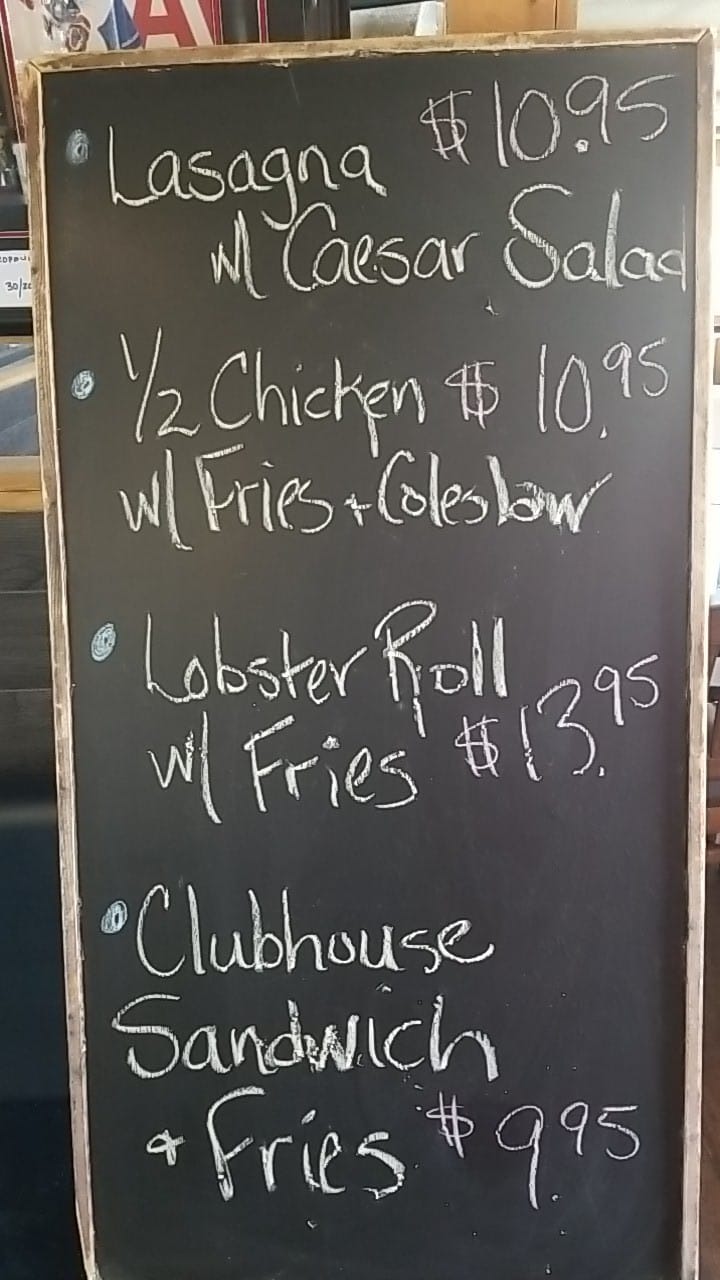 A
30/20
Lasagna $10.95
w/ Caesar Salad
1/2 Chicken $10.95
w/ Fries + Coleslaw
Lobster Roll
w/ Fries $13.95
Clubhouse
Sandwich
+ Fries $9.95